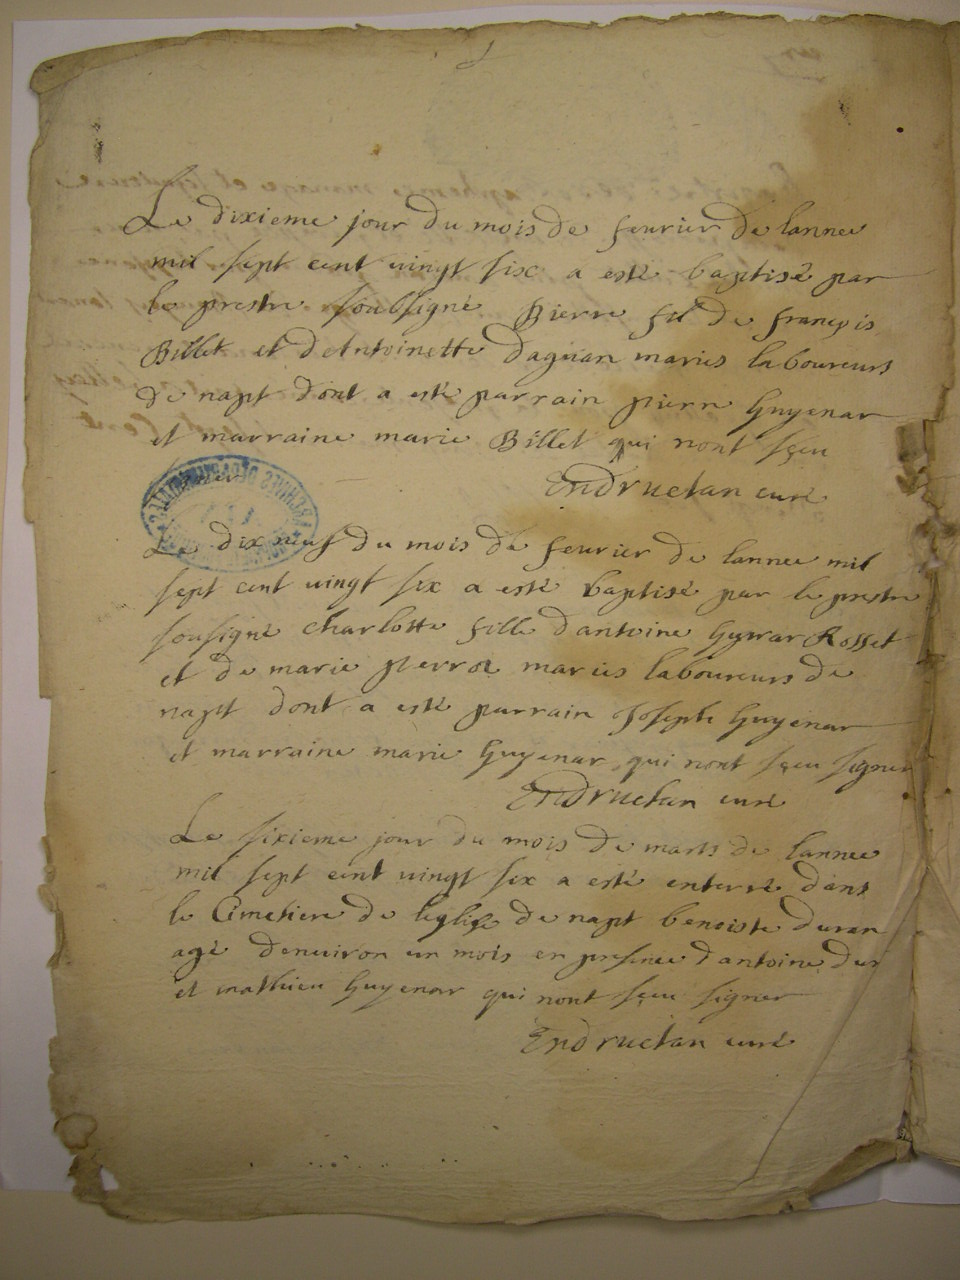 Le dixieme jour du mois de feurier de lannee
mil sept cent uingt six a esté baptisé par
le prestre soubsigné Pierre fil de françois
Billet et dAntoinette daguan mariés laboureurs
de napt dont a esté parrain pierre Guyenar
et marraine marie Billet qui nont sçeu
Endructan curé
Le dix neuf du mois de feurier de lannee mil
sept cent uingt six a esté baptisé par le prestre
sousigné charlotte fille dantoine Rosset
et de marie pierroz mariés laboureurs de
napt dont a esté parrain Joseph Guyenar
et marraine marie Guyenar qui nont sçeu signer
Endructan curé
Le sixieme jour du mois de mars de lannee
mil sept cent uingt six a esté enterré dans
le Cimetiere de leglise de napt benoiste duran
agé denuiron un mois en presence dantoine dur
et mathieu Guyenar qui nont sçeu signer
Endructan curé